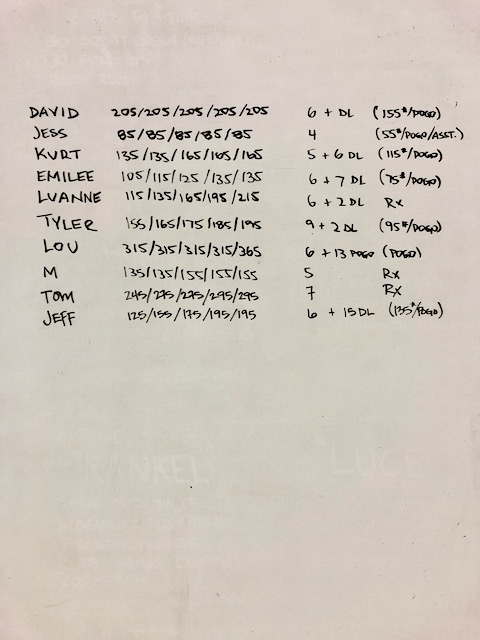 DAVID 205/205/205/205/205 6 + DL (155#/POGO)
JESS 85/85/85/85/85 4 (55#/POGO/ASST.)
KURT 135/135/165/165/165 5 + 6 DL (115#/POGO)
EMILEE 105/115/125/135/135 6 + 7 DL (75#/POGO)
LUANNE 115/135/165/195/215 6 + 2 DL RX
TYLER 155/165/175/185/195 9 + 2 DL (95#/POGO)
LOU 315/315/315/315/365 6 + 13 POGO (POGO)
M 135/135/155/155/155 5 RX
TOM 245/275/275/295/295 7 RX
JEFF 125/155/175/195/195 6 + 15 DL (135#/POGO)
RANKEL LUCE